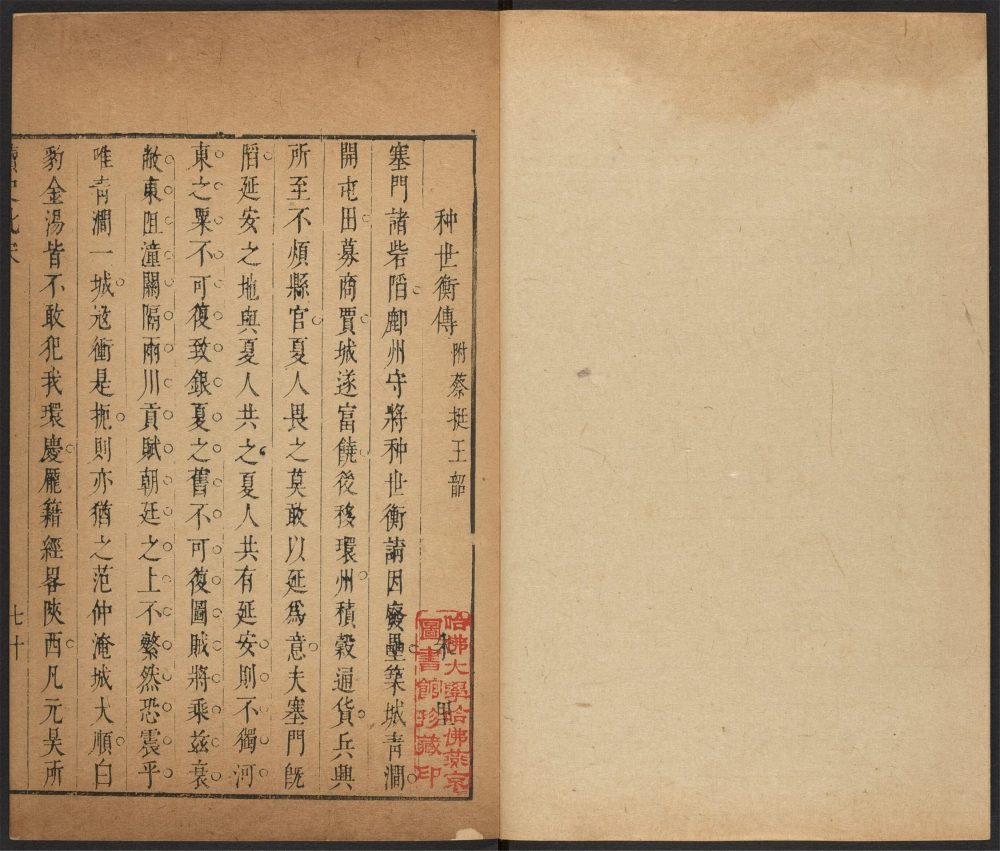 种世衡傳附蔡挺王韶
塞門諸砦陷鄜州守將种世衡請因廢壘築城青澗
開屯田募商賈城遂富饒後移環州積穀通貨兵興
所至不煩縣官夏人畏之莫敢以延爲意夫塞門旣
陷延安之地與夏人共之夏人共有延安則不獨河
東之粟不可復致銀夏之舊不可復圖賊將乘兹衰
敝東阻潼關隔兩川貢賦朝廷之上不繁然恐震乎
唯青澗一城寇衝是扼則亦猶之范仲淹城大順白
豹金湯皆不敢犯我環慶龐籍經畧陝西凡元昊所
七十
哈佛大學哈佛燕京
圖書館珍藏印